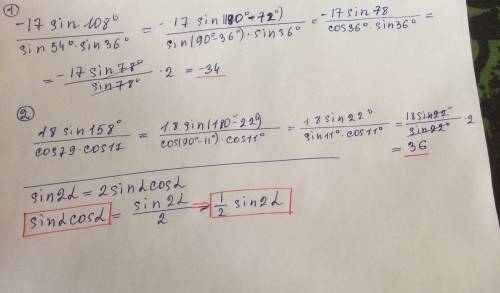 1
-17 sin 108° / sin 54° · sin 36° = - 17 sin(180°-72°) / sin(90°-36°) · sin 36° = -17 sin 78 / cos 36° · sin 36° =
= -17 sin 78° / sin 78° · 2 = -34
2
18 sin 158° / cos 79 · cos 11 = 18 sin(180°-22°) / cos(90°-11°) · cos 11° = 18 sin 22° / sin 11° · cos 11° = 18 sin 22° / sin 22° · 2
= 36
sin 2α = 2 sin α cos α
sin α cos α = sin 2α / 2 → 1/2 sin 2α